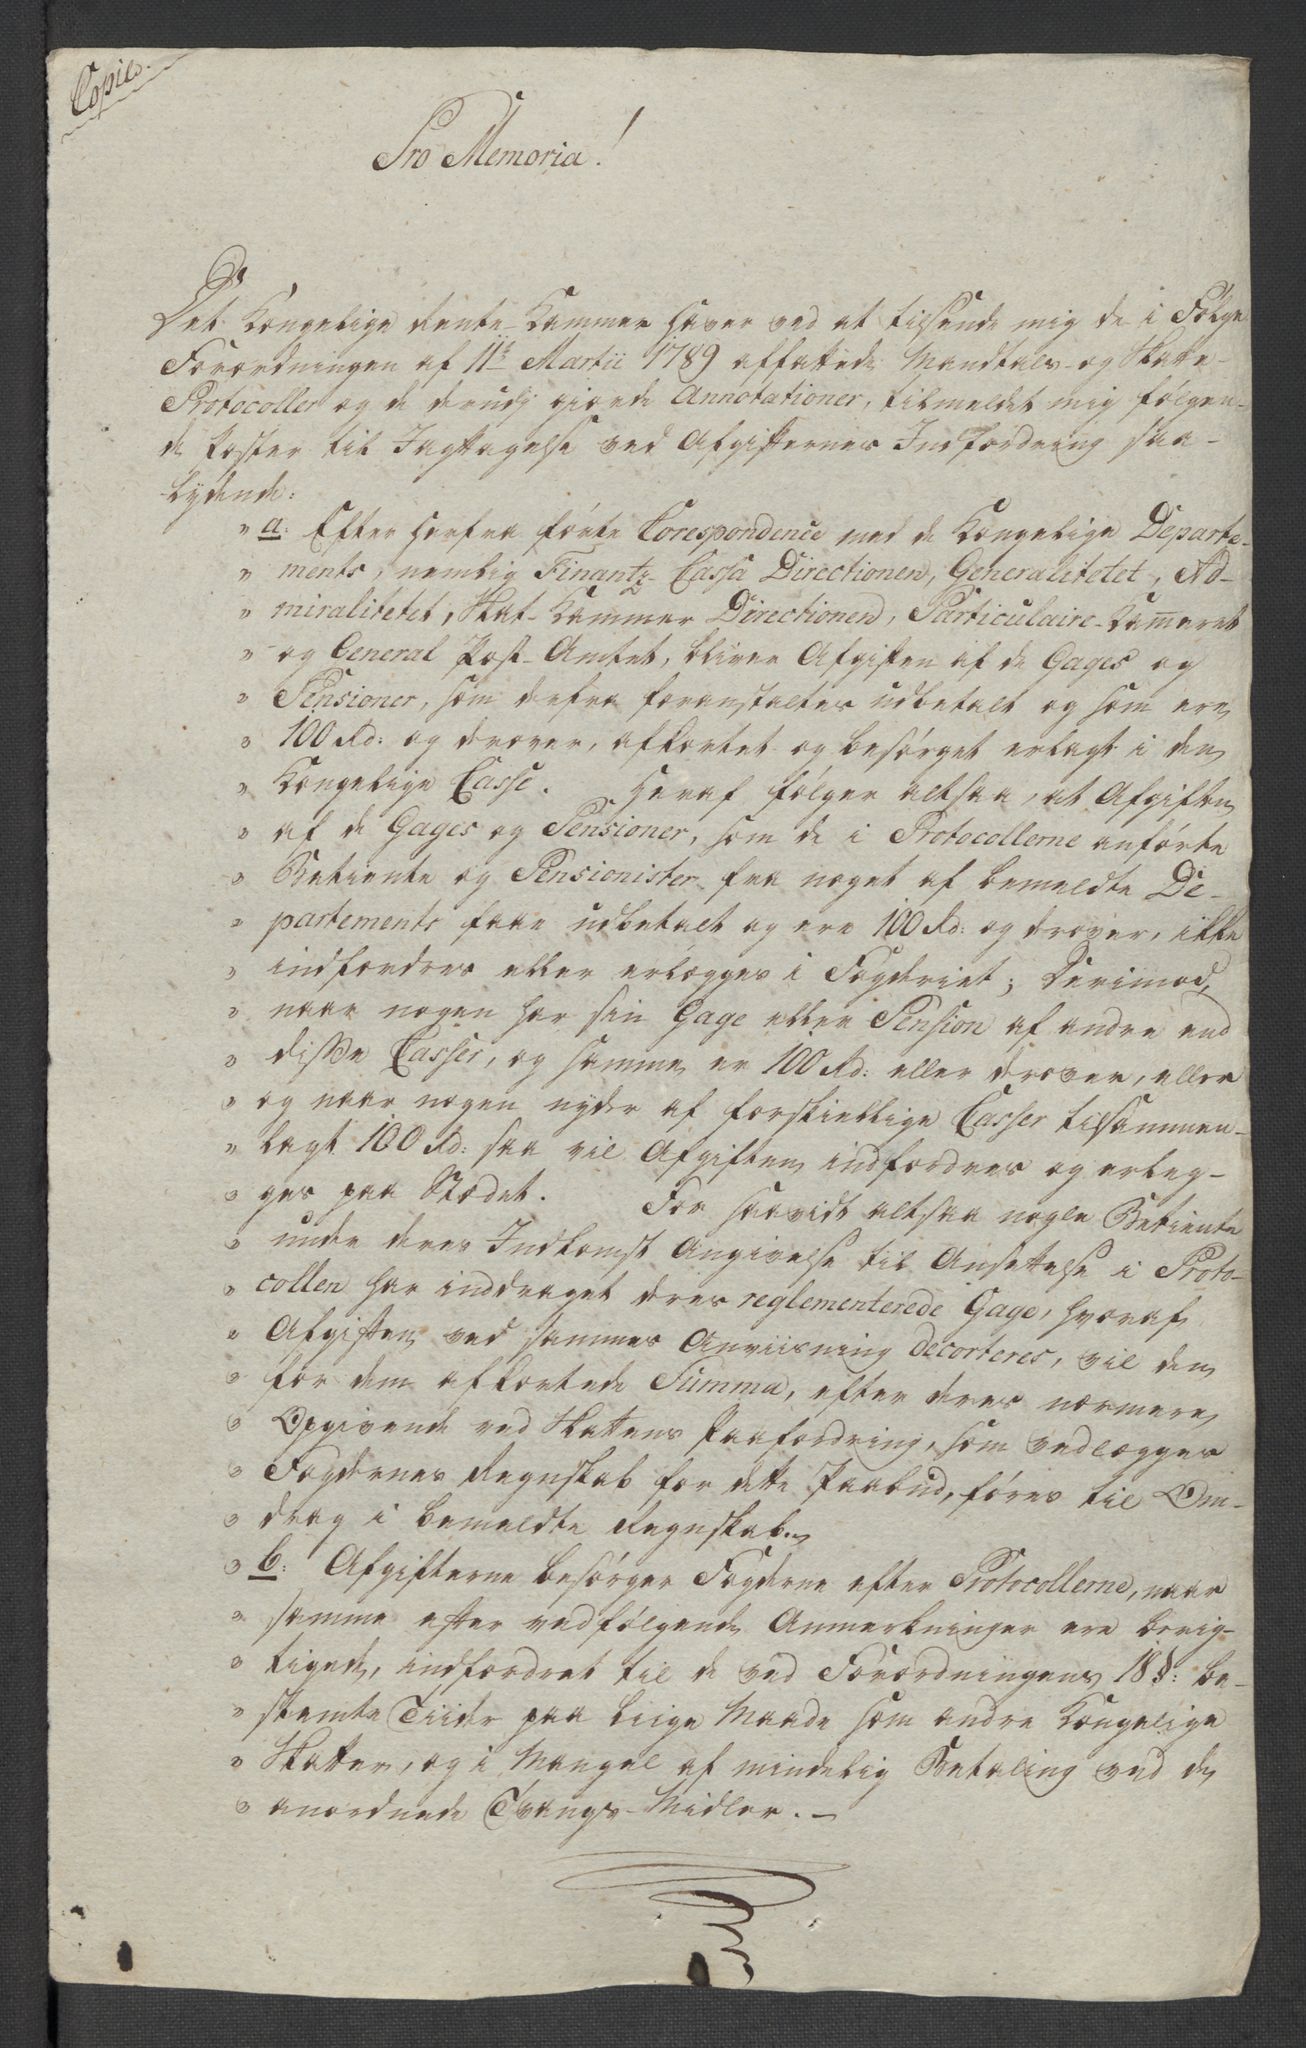 Copie.
Pro Memoria!
Det Kongelige Rente-Kammer haver ved at tilsende mig de i Følge
Forordningen af 11te Martii 1789 affattede Mandtals- og Skatte-
Protocoller og de derudj giorde Annotationer, tilmeldet mig følgen-
de Poster til Jagttagelse ved Afgifternes Indfordring saa-
lydende:
" a: Efter herfra førte Corespondence med de Kongelige Departe-
" ments, nemlig Finantz-Cassa Directionen, Generalitetet, Ad-
" miralitetet, Skat-Kammer Directionen, Particulaire-Kam̅eret
" og General Post-Amtet, bliver Afgiften af de Gages og
" Pensioner, som derfra foranstaltes udbetalt og som ere
" 100 Rd: og derover, afkortet og besørget erlagt i den
" Kongelige Casse. Heraf følger altsaa, at Afgiften
" af de Gages og Pensioner, som de i Protocollerne anførte
" Betiente og Pensionister fra noget af bemeldte De-
" partements faar udbetalt og ere 100 Rd: og derover, ikke
" indfordres eller erlægges i Fogderiet; Derimod,
" naar nogen har sin Gage eller Pension af andre end
" disse Casser, og samme er 100 Rd: eller derover, eller
" og naar nogen nyder af forskiellige Casser tilsammen-
" lagt 100 Rd: saa vil Afgiften indfordres og erleg-
" ges paa Stædet. For saavidt altsaa nogle Betiente
" under deres Indkomst Angivelse til Ansættelse i Proto-
" collen har inddraget deres reglementerede Gage, hvoraf
" Afgiften ved sammes Anviisning decorteres, vil den
" for dem afkortede Summa, efter deres nærmere
" Opgivende ved Skattens Paafordring, som vedlægges
" Fogdernes Regnskab for dette Paabud, føres til Om-
" drag i bemeldte Regnskab.
" b: Afgifterne besørger Fogderne efter Protocollerne, naar
" samme efter vedfølgende Anmerkninger ere berig-
" tigede, indfordret til de ved Forordningens 18 §: be-
" stemte Tiider paa liige Maade som andre Kongelige
" Skatter, og i Mangel af mindelig Betaling ved de
" anordnede Tvangs-Midler. –